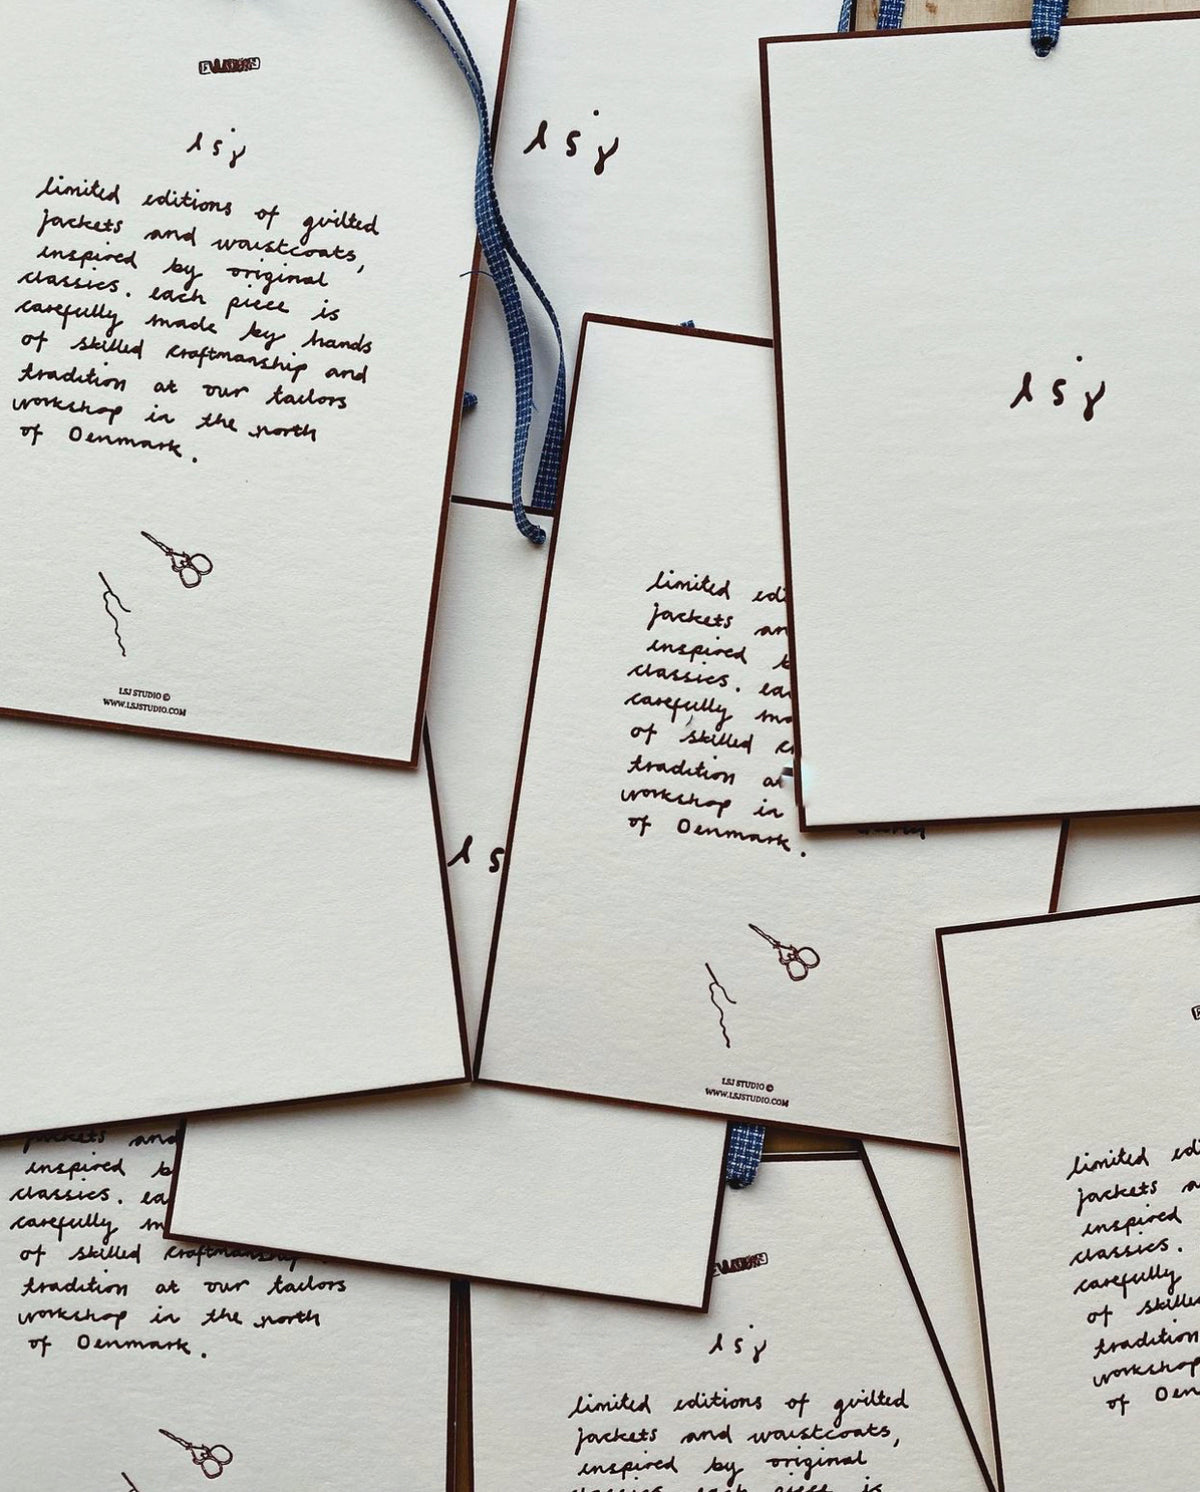 l s j
limited editions of quilted
jackets and waistcoats,
inspired by original
classics. each piece is
carefully made by hands
of skilled craftmanship and
tradition at our tailors
workshop in the north
of Denmark.
LSJ STUDIO ©
WWW.LSJSTUDIO.COM
l s j
l s j
l s
limited edi
jackets an
inspired b
classics. ea
carefully ma
of skilled c
tradition at
workshop in
of Denmark.
LSJ STUDIO ©
WWW.LSJSTUDIO.COM
jackets and
inspired b
classics. ea
carefully m
of skilled craftmanship
tradition at our tailors
workshop in the north
of Denmark.
l s j
limited editions of quilted
jackets and waistcoats,
inspired by original
classics. each piece is
limited edi
jackets a
inspired
classics.
carefully
of skille
tradition
workshop
of Den